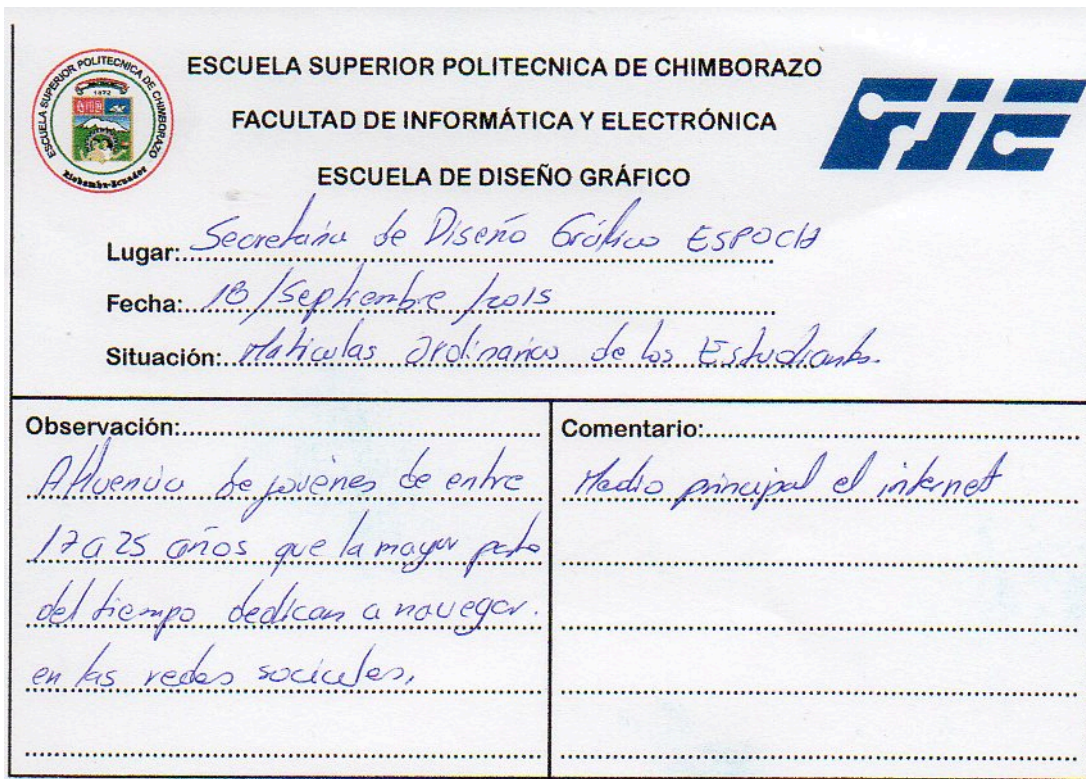 ESCUELA SUPERIOR POLITECNICA DE CHIMBORAZO
ESCUELA SUPERIOR POLITECNICA DE CHIMBORAZO
1972
Riobamba-Ecuador
FACULTAD DE INFORMÁTICA Y ELECTRÓNICA
FIE
ESCUELA DE DISEÑO GRÁFICO
Lugar: Secretaria de Diseño Gráfico ESPOCH
Fecha: 18/Septiembre/2015
Situación: Matriculas Ordinarias de los Estudiantes.
Observación:
Afluencia de jovenes de entre
17 a 25 años que la mayor parte
del tiempo dedican a navegar.
en las redes sociales.
Comentario:
Medio principal el internet